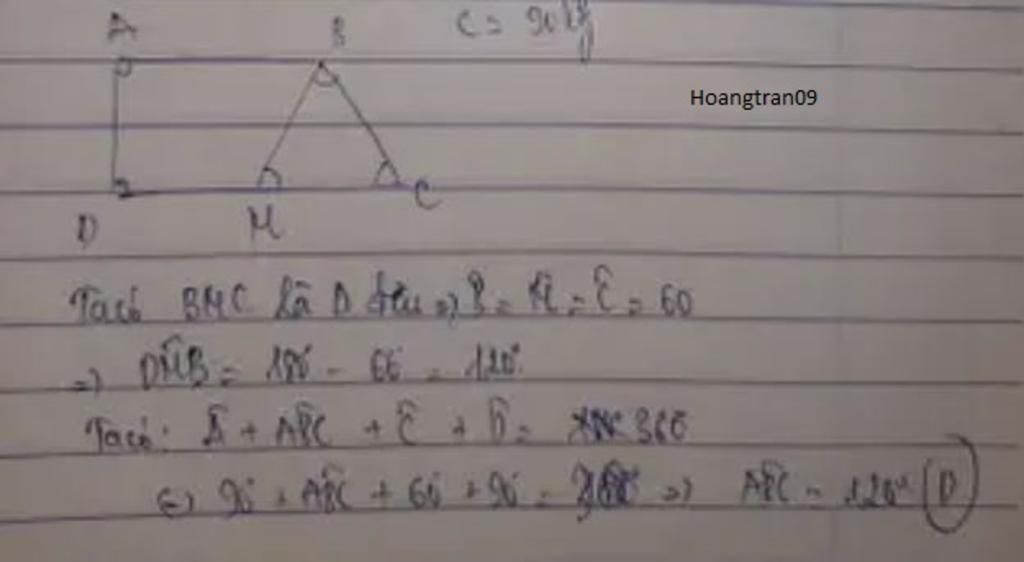 A B
Hoangtran09
D M C
Ta có BMC là Δ đều => B̂ = M̂ = Ĉ = 60
=> DM̂B = 180° - 60° = 120°
Ta có: Â + AB̂C + Ĉ + D̂ = 360
<=> 90° + AB̂C + 60° + 90° = 360° => AB̂C = 120° (D)